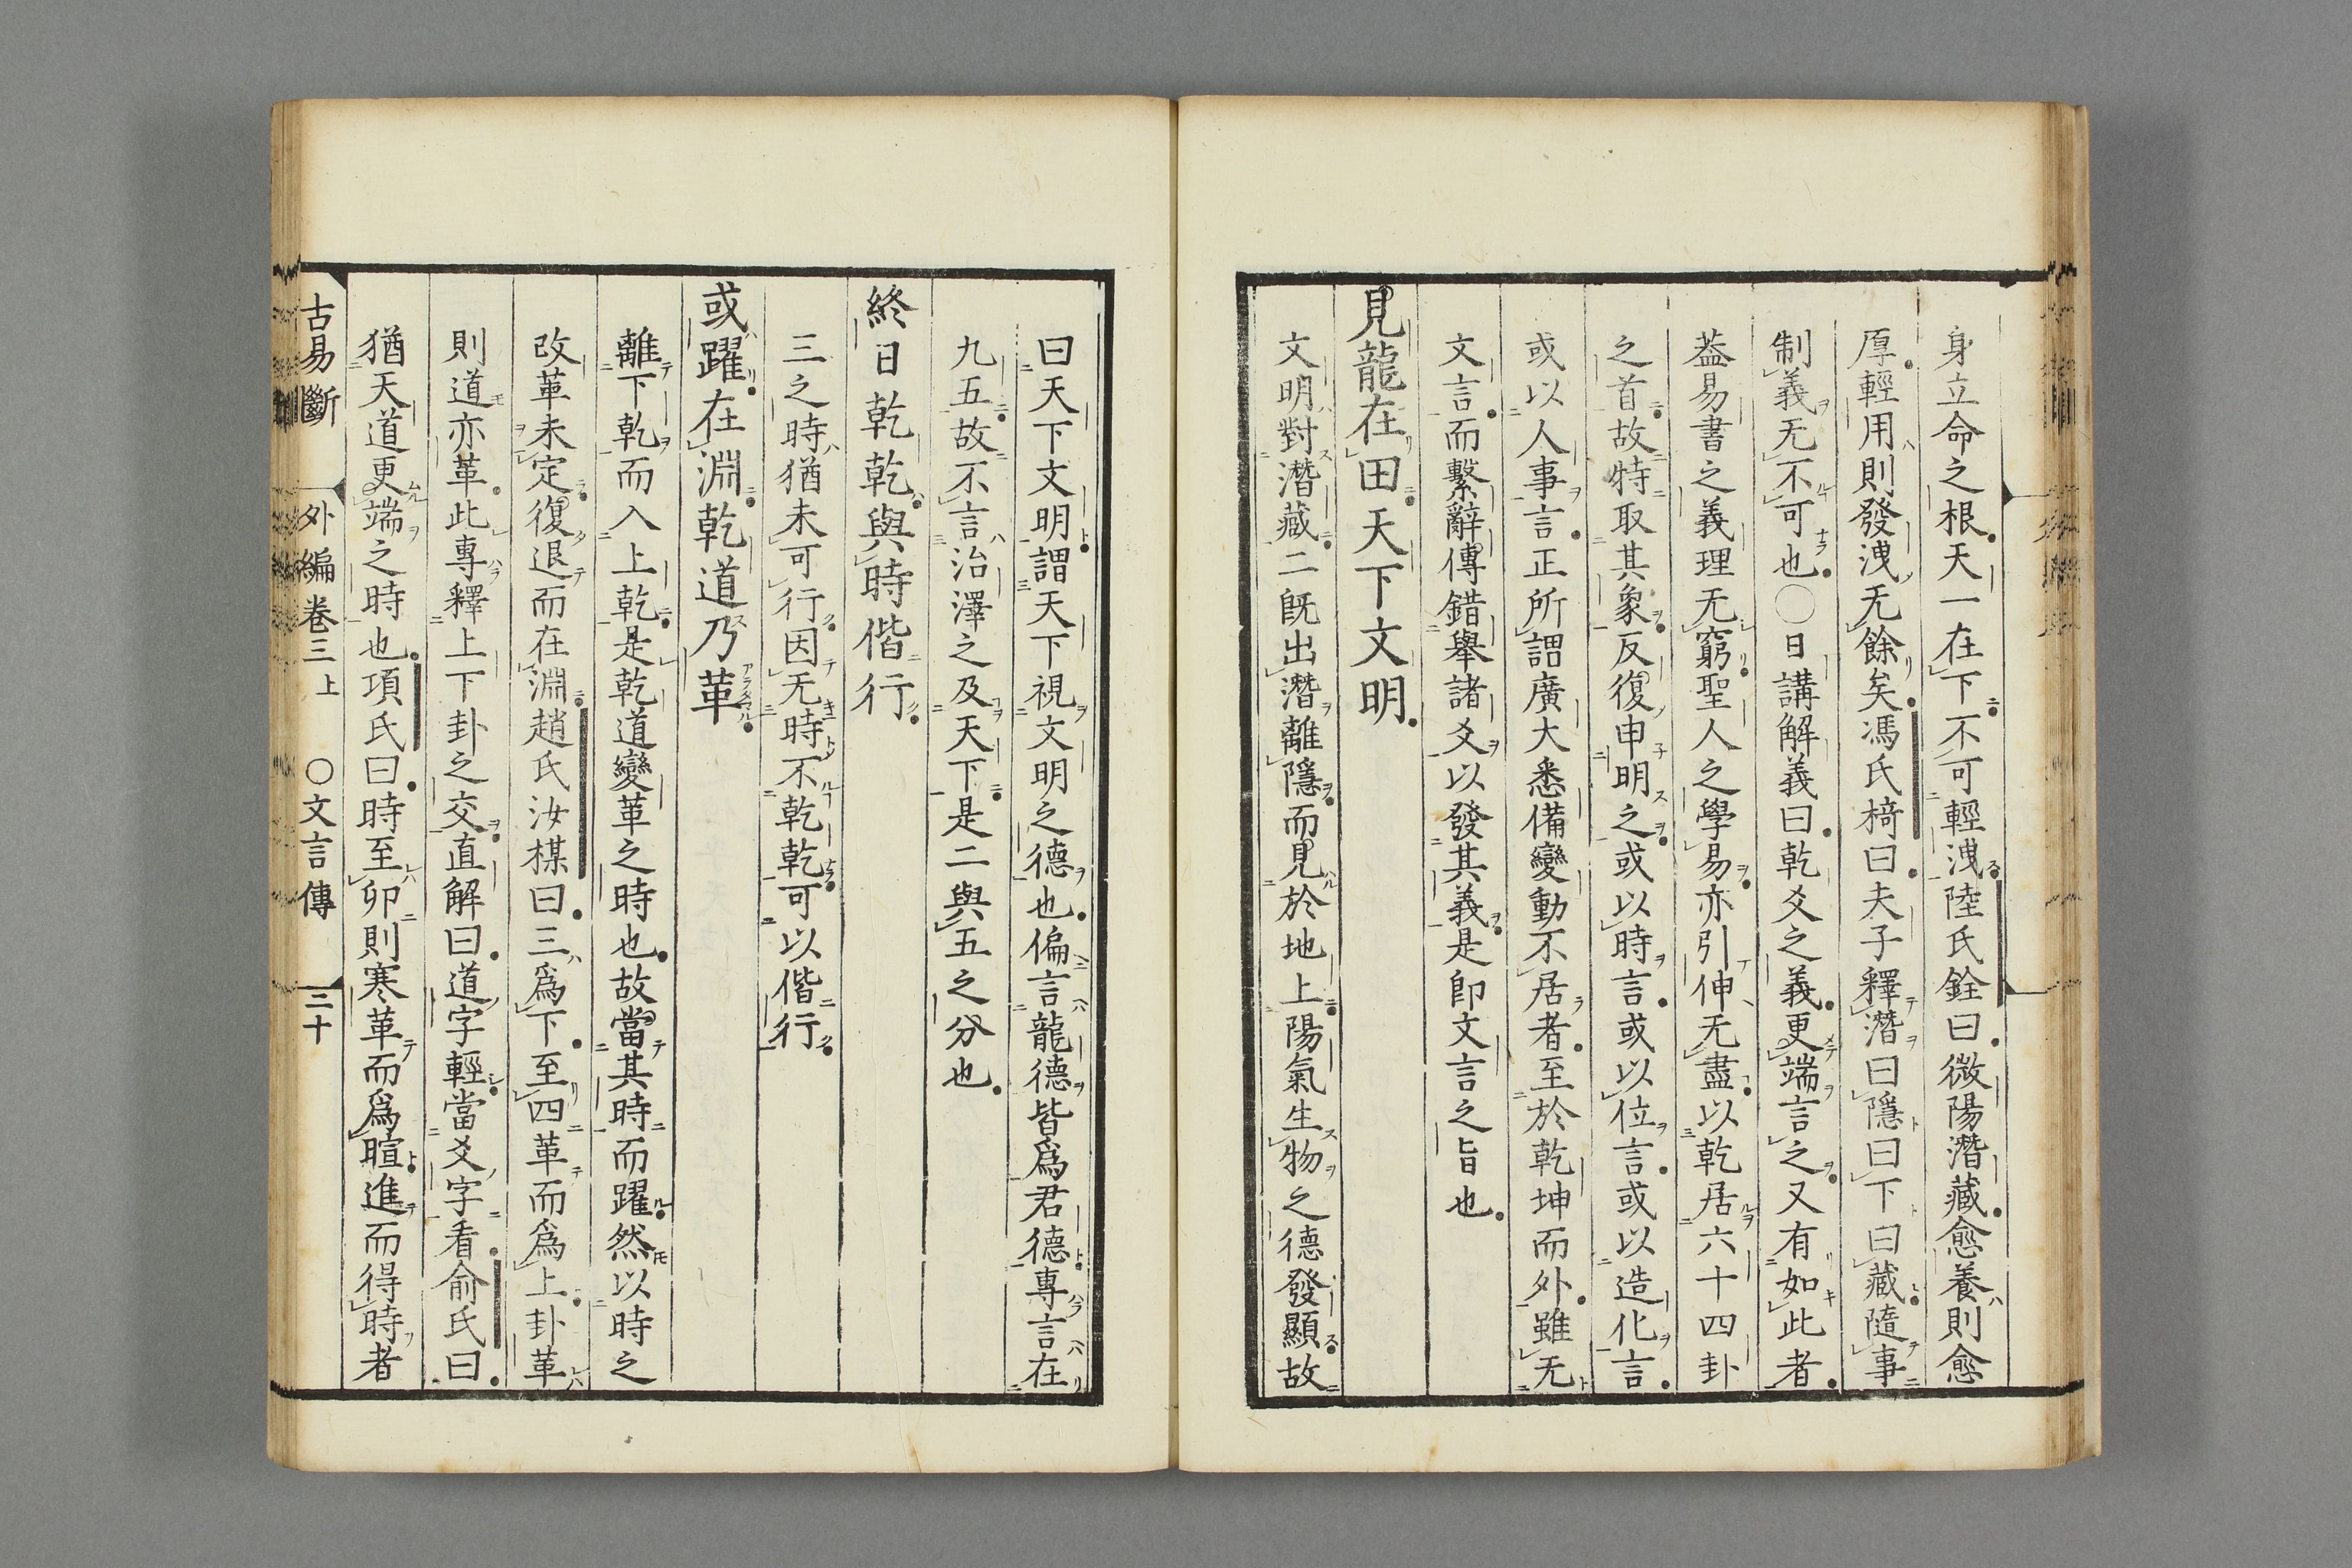 身立命之根天一在下不可輕洩陸氏銓曰微陽潛藏愈養則愈
厚輕用則發洩无餘矣馮氏椅曰夫子釋潛曰隱曰下曰藏隨事
制義无不可也〇日講解義曰乾爻之義更端言之又有如此者
葢易書之義理无窮聖人之學易亦引伸无盡以乾居六十四卦
之首故特取其象反復申明之或以時言或以位言或以造化言
或以人事言正所謂廣大悉備變動不居者至於乾坤而外雖无
文言而繫辭傳錯舉諸爻以發其義是卽文言之旨也
見龍在田天下文明
文明對潛藏二旣出潛離隱而見於地上陽氣生物之德發顯故
曰天下文明謂天下視文明之德也偏言龍德皆爲君德專言在
九五故不言治澤之及天下是二與五之分也
終日乾乾與時偕行
三之時猶未可行因无時不乾乾可以偕行
或躍在淵乾道乃革
離下乾而入上乾是乾道變革之時也故當其時而躍然以時之
改革未定復退而在淵趙氏汝楳曰三爲下至四革而爲上卦革
則道亦革此專釋上下卦之交直解曰道字輕當爻字看俞氏曰
猶天道更端之時也項氏曰時至卯則寒革而爲暄進而得時者
古易斷 外編卷三上 〇文言傳 三十